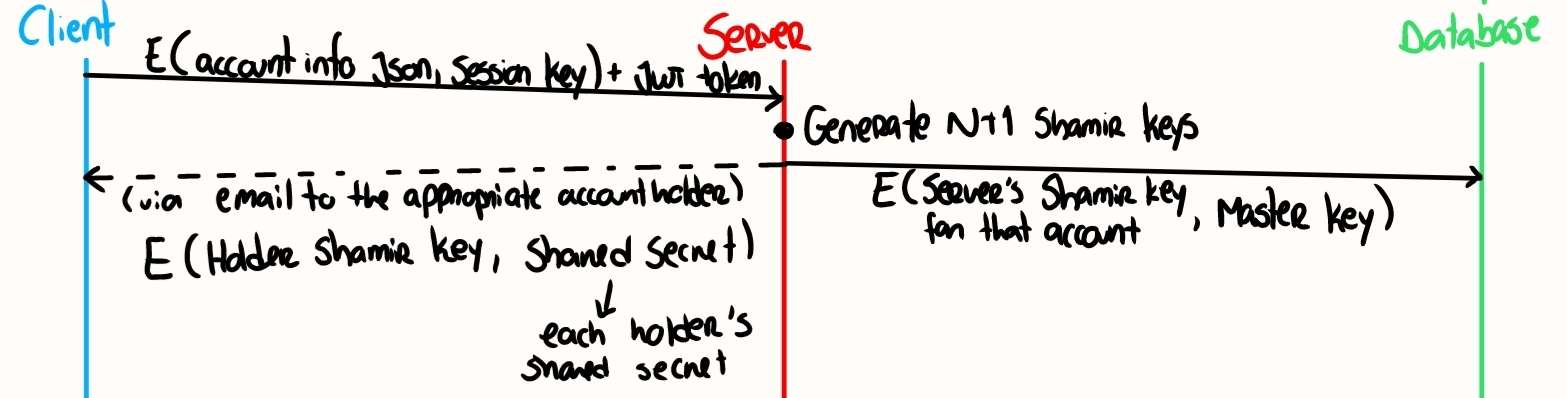 Client
Server
Database
E(account info Json, Session key) + JWT token
Generate N+1 Shamir keys
(via email to the appropriate account holder)
E(Holder Shamir key, shared secret)
each holder's
shared secret
E(Server's Shamir key
for that account, Master key)